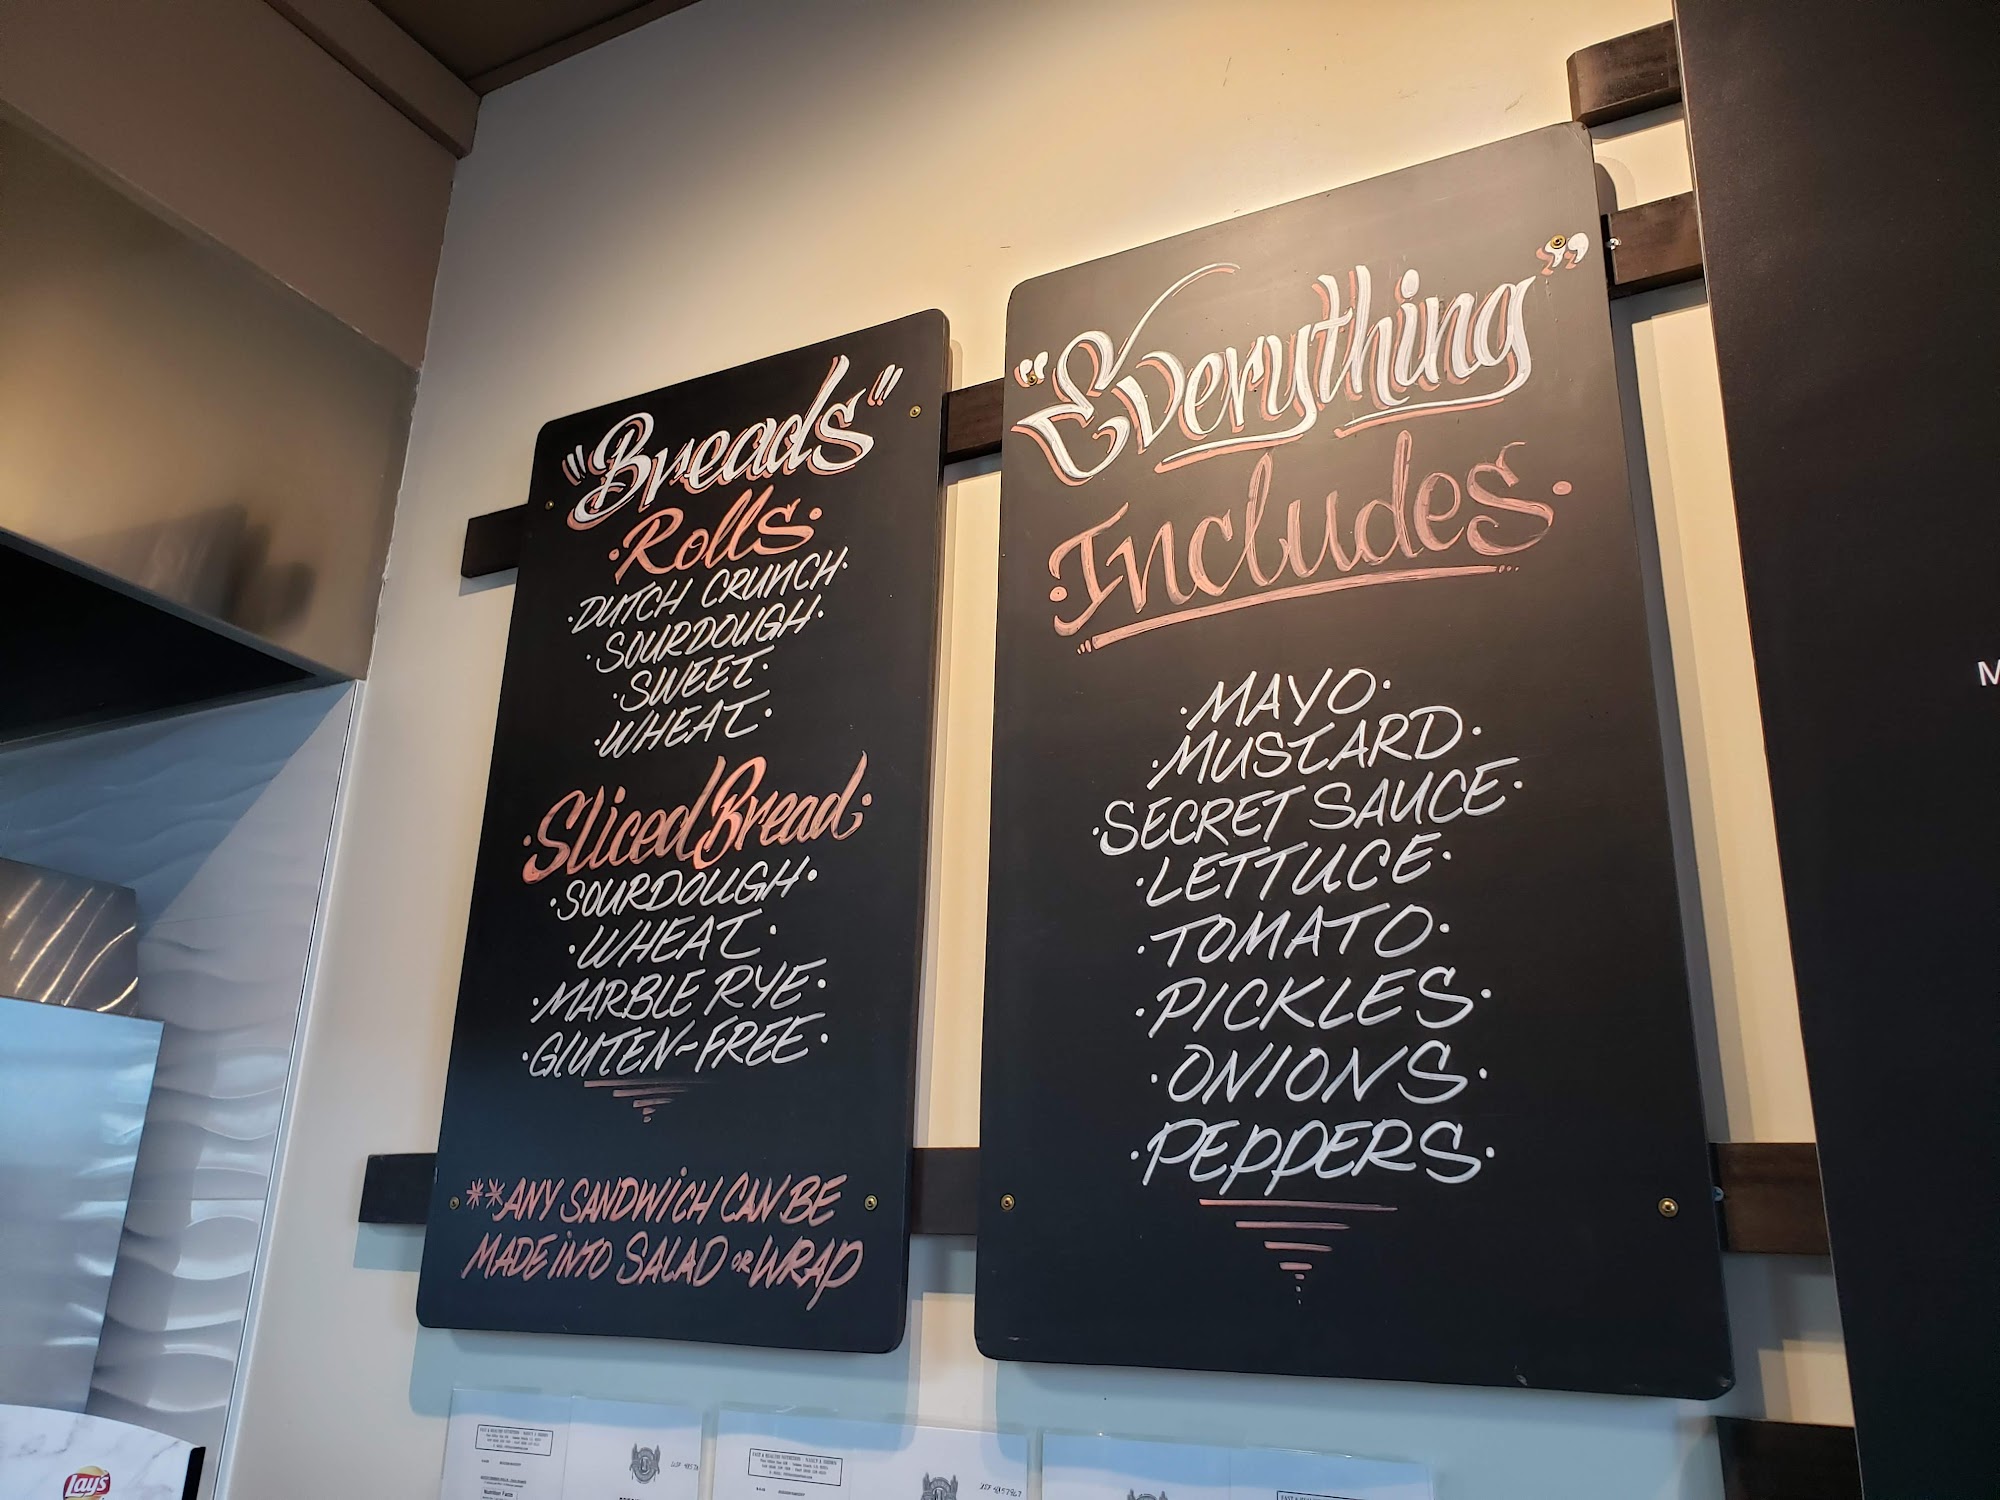 "Breads"
·Rolls·
·DUTCH CRUNCH·
·SOURDOUGH·
·SWEET·
·WHEAT·
·Sliced Bread·
·SOURDOUGH·
·WHEAT·
·MARBLE RYE·
·GLUTEN-FREE·
**ANY SANDWICH CAN BE
MADE INTO SALAD OR WRAP
"Everything"
·Includes·
·MAYO·
·MUSTARD·
·SECRET SAUCE·
·LETTUCE·
·TOMATO·
·PICKLES·
·ONIONS·
·PEPPERS·
M
Lay's
Nutrition Facts